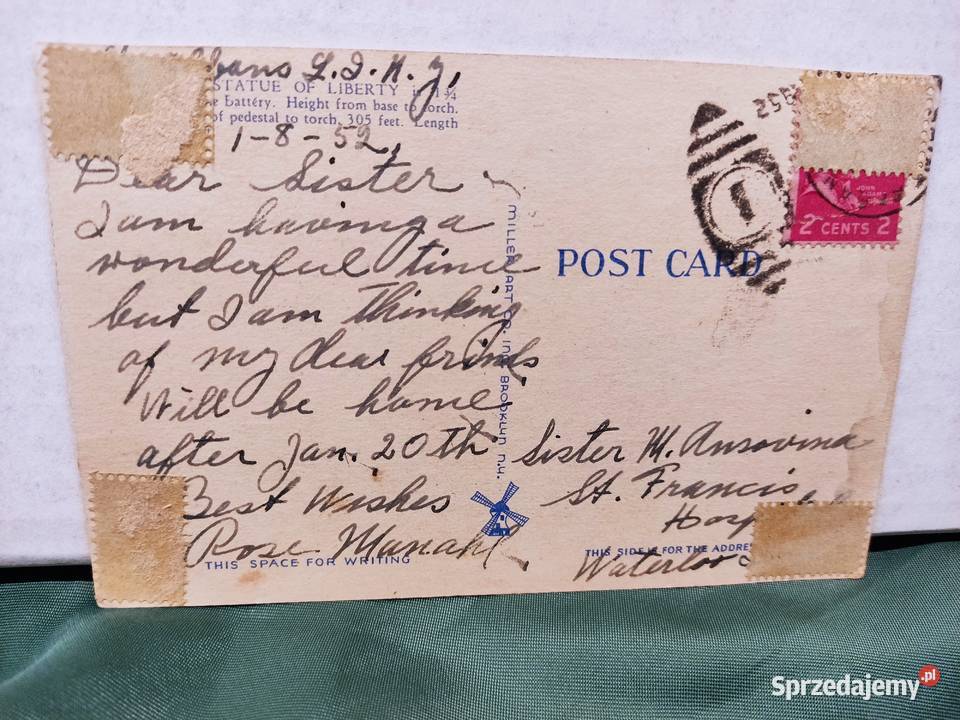 L.I.N.Y.
STATUE OF LIBERTY
Battery. Height from base to torch.
of pedestal to torch, 305 feet. Length
1-8-52.
Dear Sister
I am having a
wonderful time
but I am thinking
of my dear frinds
Will be home
after Jan. 20th
Best Wishes
Rose
THIS SPACE FOR WRITING
MILLER ART CO. INC. BROOKLYN N.Y.
POST CARD
1952
JOHN
2 CENTS 2
Sister M. Ansovina
St. Francis
THIS SIDE IS FOR THE
Waterloo
Sprzedajemy.pl